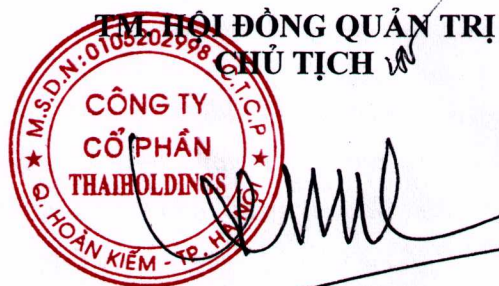 TM. HỘI ĐỒNG QUẢN TRỊ
CHỦ TỊCH
M.S.D.N: 0105202998 C.T.C.P
CÔNG TY
CỔ PHẦN
THAIHOLDINGS
Q. HOÀN KIẾM - TP. HÀ NỘI